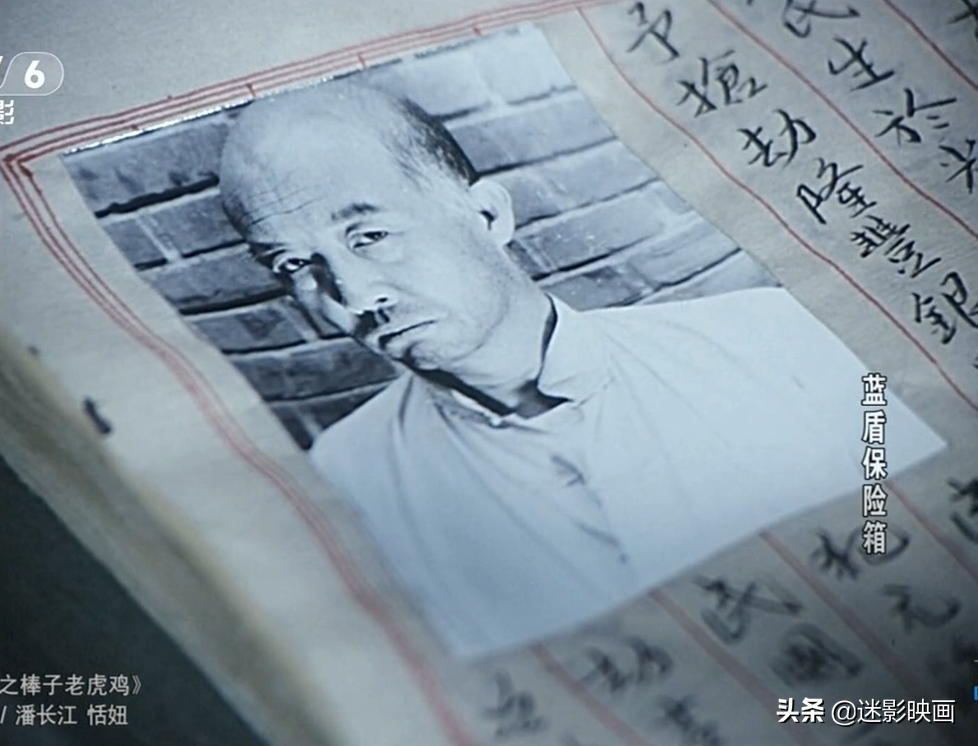 6
影
予搶劫隆豐銀
民生於光
劫
民國
元
蓝盾保险箱
之棒子老虎鸡》
/ 潘长江 恬妞
头条 @迷影映画